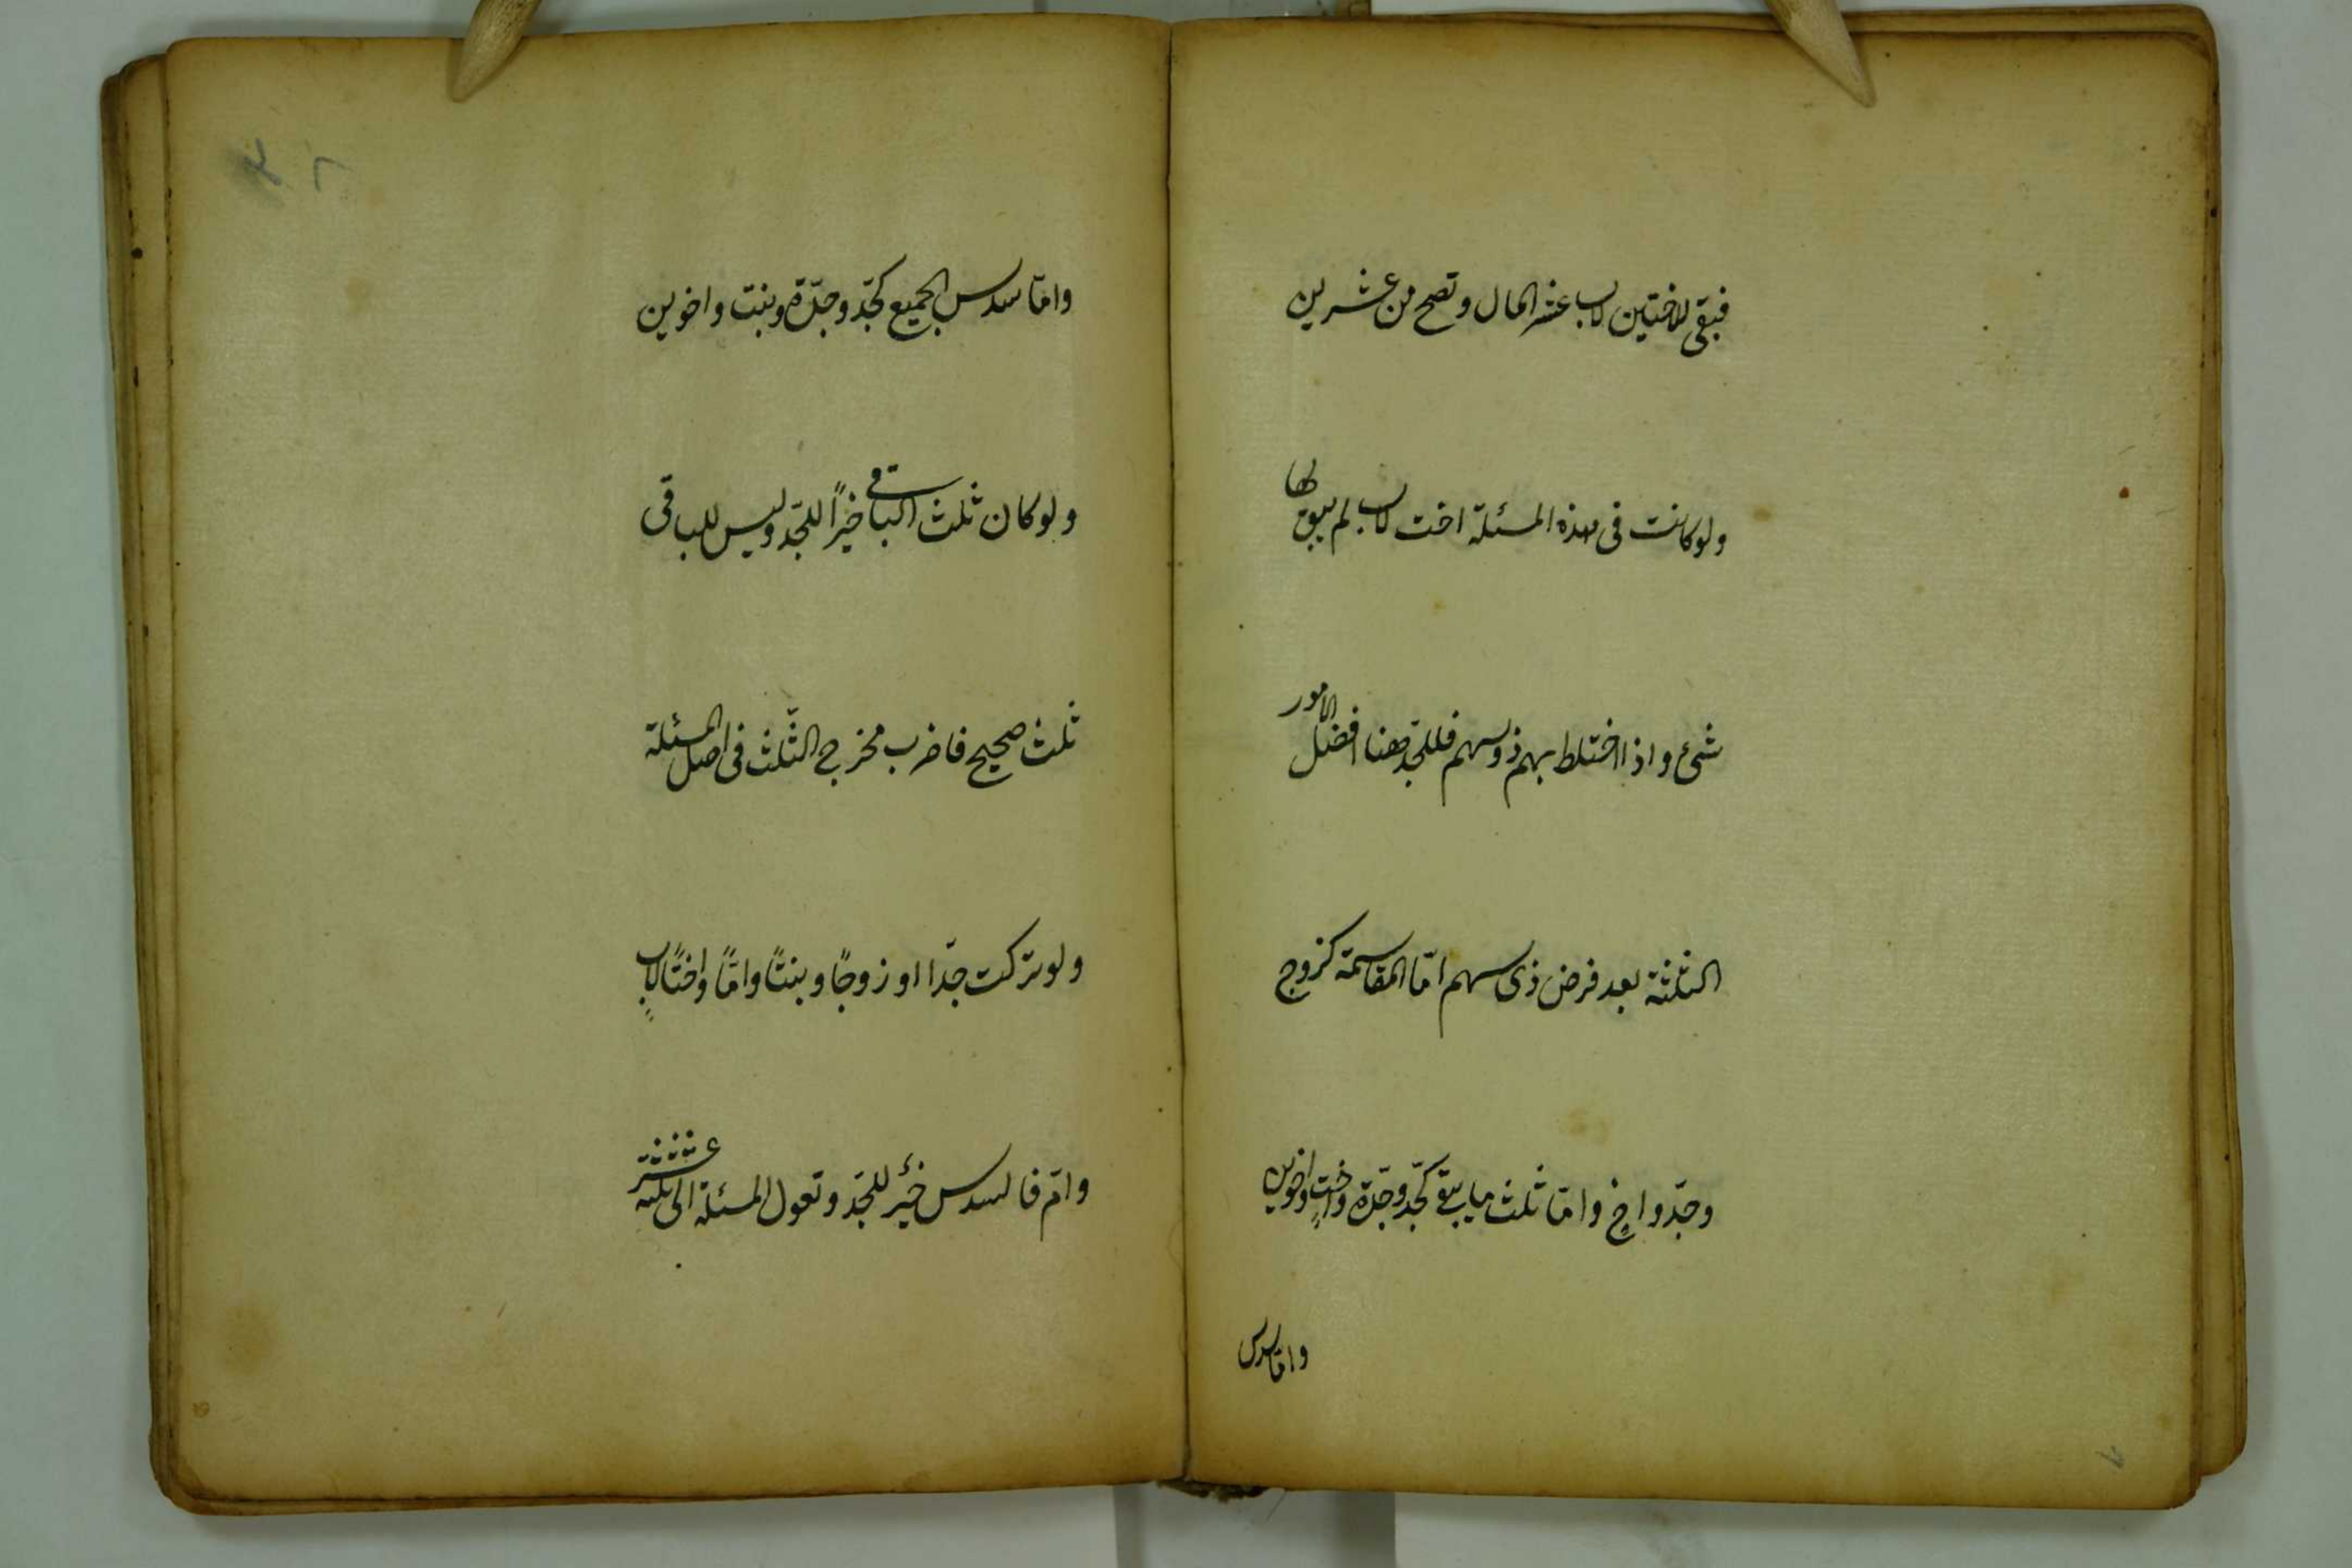 فبقى للاختين لاب عشر المال وتصح من عشرين
ولو كانت فى هذه المسئلة اخت لاب لم يبق لها
شئ واذا اختلط بهم ذو سهم فللجد هنا افضل الامور
الثلثة بعد فرض ذى سهم امّا المقاسمة كزوج
وجدّ واخ وامّا ثلث ما يبقى كجدّ وجدّة واخت واخوين
وامّا سدس
وامّا سدس الجميع كجدّ وجدّة وبنت واخوين
ولو كان ثلث الباقى خيرًا للجدّ وليس للباقى
ثلث صحيح فاضرب مخرج الثّلث فى اصل المسئلة
ولو تركت جدّا او زوجًا وبنتًا وامًّا واختًا لابٍ
وامّ فالسدس خيرٌ للجدّ وتعول المسئلة الى ثلثة عشر